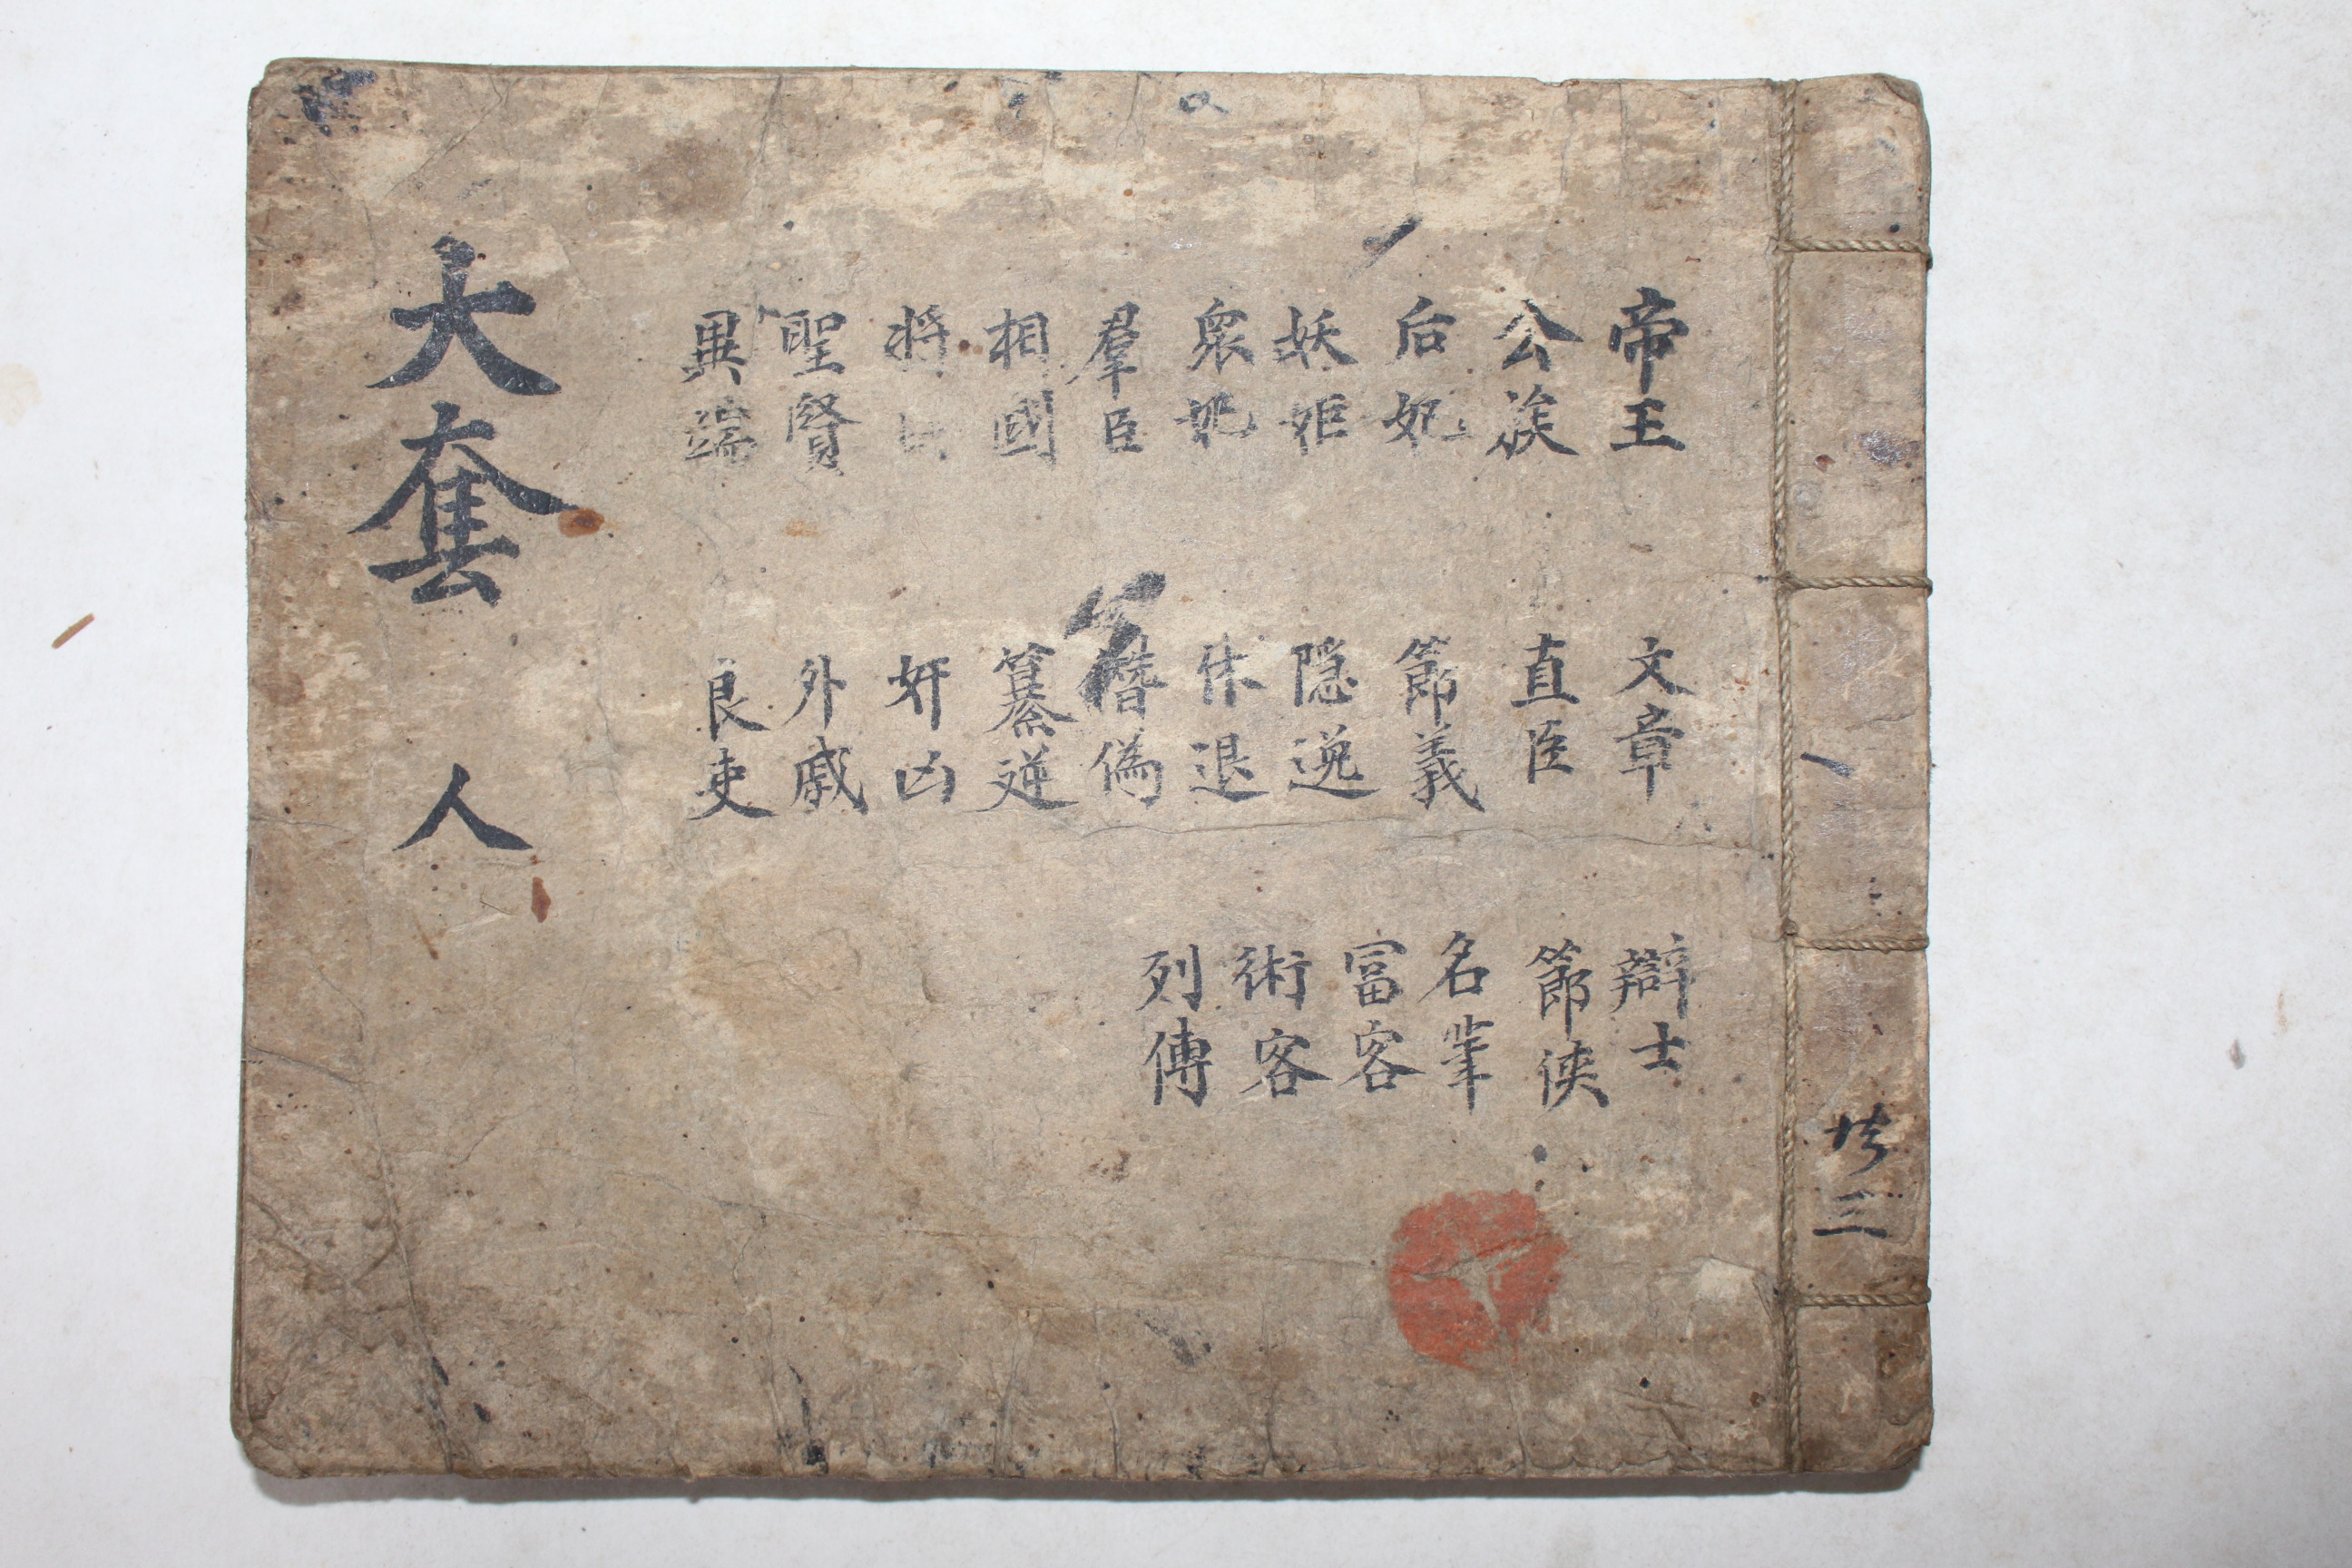 共三
帝王
公族
后妃
妖姬
衆妃
羣臣
相國
将
聖賢
異端
文章
直臣
節義
隠逸
休退
僭偽
簒逆
奸凶
外戚
良吏
辯士
節俠
名筆
富客
術客
列傳
大套 人